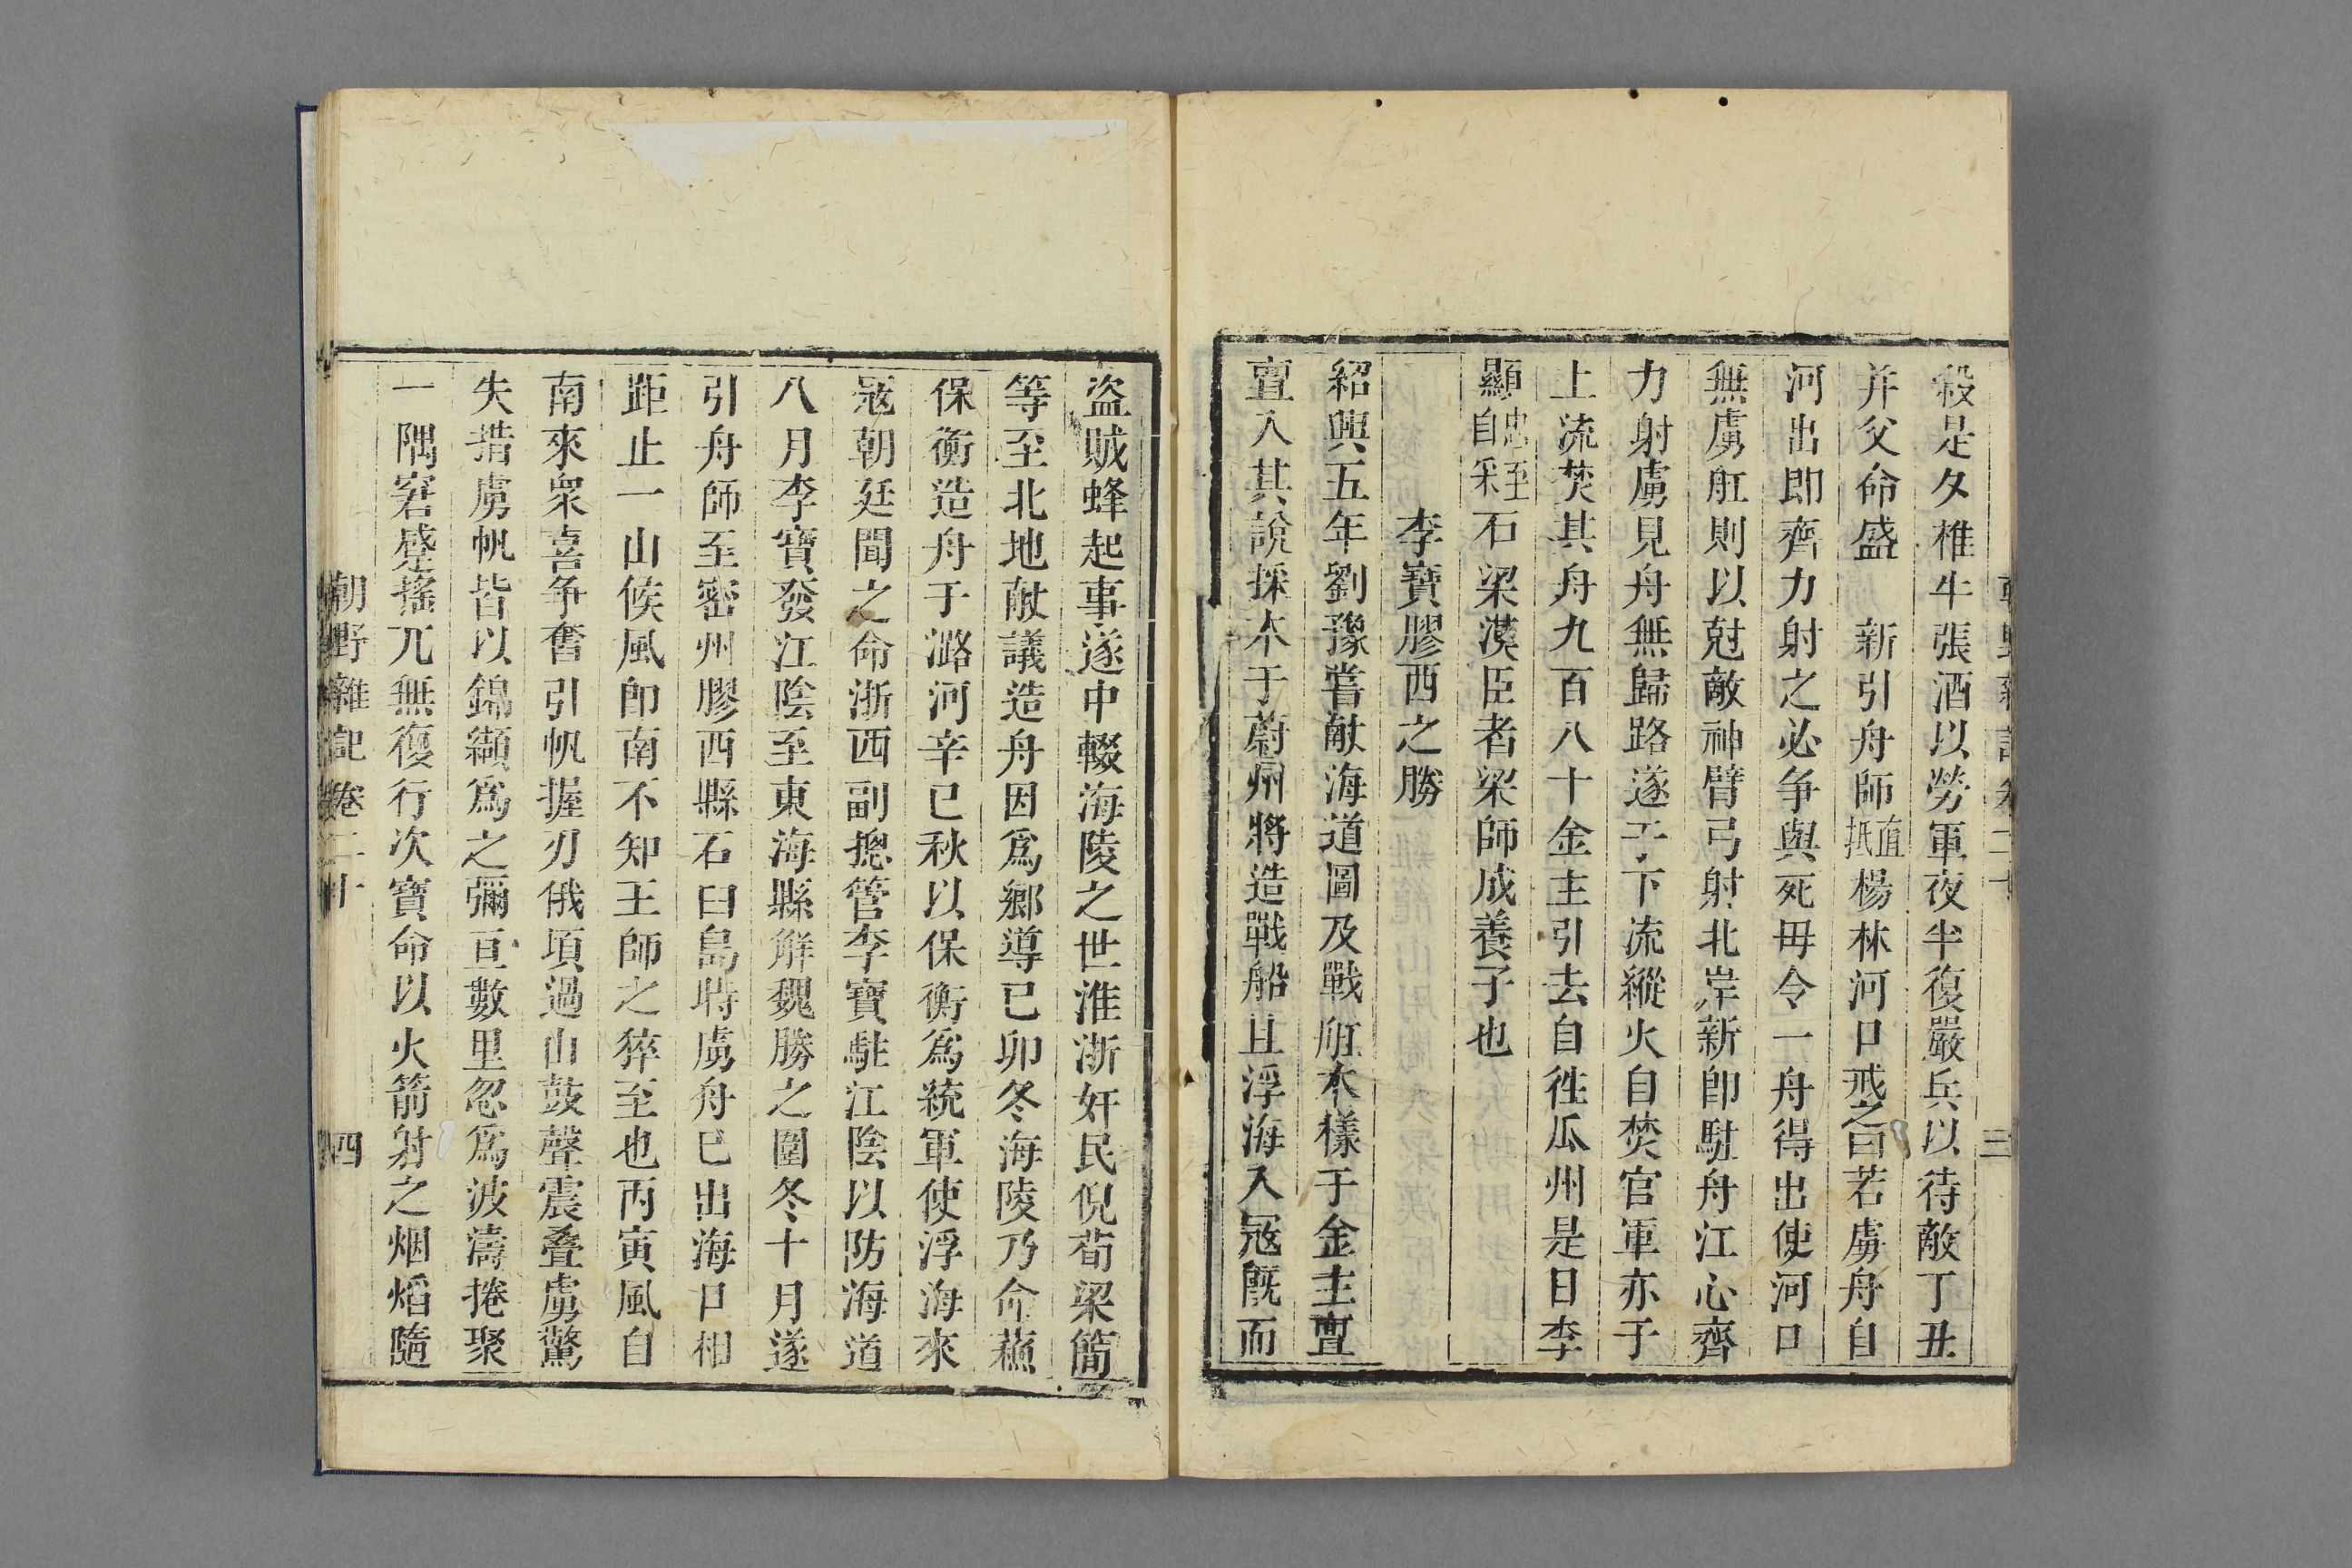 殺是夕椎牛張酒以勞軍夜半復嚴兵以待敵丁丑
并父命盛 新引舟師直抵楊林河口戒之曰若虜舟自
河出即齊力射之必争與死毋令一舟得出使河口
無虜舡則以尅敵神臂弓射北岸新卽駐舟江心齊
力射虜見舟無歸路遂于下流縱火自焚官軍亦于
上流焚其舟九百八十金主引去自徃瓜州是日李
顯忠至自采石梁漢臣者梁師成養子也
李寶膠西之勝
紹興五年劉豫嘗献海道圖及戰舡木樣于金主亶
亶入其說採木于蔚州將造戰船且浮海入冦旣而
盜賊蜂起事遂中輟海陵之世淮浙奸民倪荀梁簡
等至北地献議造舟因爲鄉導已卯冬海陵乃命蘓
保衡造舟于潞河辛已秋以保衡爲統軍使浮海來
冦朝廷聞之命浙西副摠管李寶駐江陰以防海道
八月李寶發江陰至東海縣解魏勝之圍冬十月遂
引舟師至密州膠西縣石臼島時虜舟已出海口相
距止一山候風卽南不知王師之猝至也丙寅風自
南來衆喜争奮引帆握刃俄頃過山鼓聲震叠虜驚
失措虜帆皆以錦纈爲之彌亘數里忽爲波濤捲聚
一隅窘蹙搖兀無復行次寶命以火箭射之烟熖隨
朝野雜記 卷二十 四